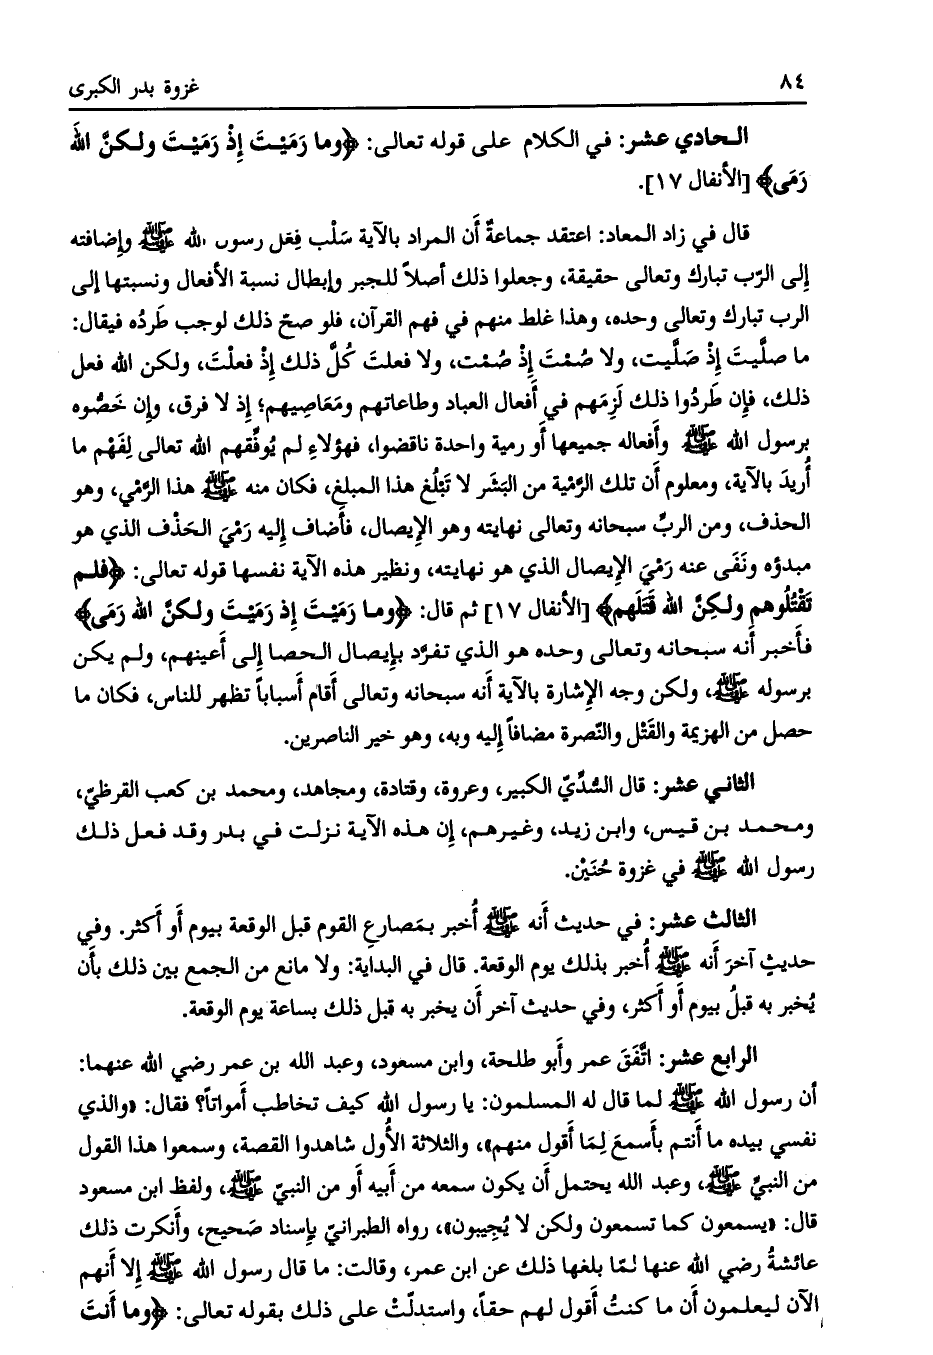 ٨٤
غزوة بدر الكبرى
الحادي عشر: في الكلام على قوله تعالى: ﴿وما رَمَيْتَ إِذْ رَمَيْتَ ولكنَّ اللهَ
رَمَى﴾ [الأنفال ١٧].
قال في زاد المعاد: اعتقد جماعةٌ أَن المراد بالآية سَلْب فِعْل رسول الله ﷺ وإِضافته
إِلى الرّب تبارك وتعالى حقيقة، وجعلوا ذلك أصلاً للجبر وإِبطال نسبة الأفعال ونسبتها إلى
الرب تبارك وتعالى وحده، وهذا غلط منهم في فهم القرآن، فلو صحّ ذلك لوجب طَردُه فيقال:
ما صلَّيتَ إِذْ صَلَّيت، ولا صُمْتَ إِذْ صُمْت، ولا فعلتَ كُلَّ ذلك إِذْ فعلْتَ، ولكن الله فعل
ذلك، فإِن طَردُوا ذلك لَزِمَهم في أَفعال العباد وطاعاتهم ومَعَاصِيهم؛ إذ لا فرق، وإِن خَصُّوه
برسول الله ﷺ وأَفعاله جميعها أَو رمية واحدة ناقضوا، فهؤلاءِ لم يُوفِّقهم الله تعالى لِفَهْم ما
أُريدَ بالآية، ومعلوم أَن تلك الرَّمْية من البَشَر لا تَبْلُغ هذا المبلغ، فكان منه ﷺ هذا الرَّمْي، وهو
الحذف، ومن الربِّ سبحانه وتعالى نهايته وهو الإِيصال، فأَضاف إِليه رَمْيَ الحَذْف الذي هو
مبدؤه ونَفَى عنه رَمْيَ الإِيصال الذي هو نهايته، ونظير هذه الآية نفسها قوله تعالى: ﴿فلم
تَقْتُلُوهم ولكِنَّ الله قَتَلَهم﴾ [الأنفال ١٧] ثم قال: ﴿وما رَمَيْتَ إِذ رَمَيْتَ ولكنَّ الله رَمَى﴾
فأَخبر أَنه سبحانه وتعالى وحده هو الذي تفرَّد بإِيصال الحصا إِلى أَعينهم، ولم يكن
برسوله ﷺ، ولكن وجه الإِشارة بالآية أَنه سبحانه وتعالى أَقام أَسباباً تظهر للناس، فكان ما
حصل من الهزيمة والقَتْل والنّصرة مضافاً إِليه وبه، وهو خير الناصرين.
الثاني عشر: قال السُّدِّيّ الكبير، وعروة، وقتادة، ومجاهد، ومحمد بن كعب القرظيّ،
ومحمد بن قيس، وابن زيد، وغيرهم، إِن هذه الآية نزلت في بدر وقد فعل ذلك
رسول الله ﷺ في غزوة حُنَيْن.
الثالث عشر: في حديث أَنه ﷺ أُخبر بمَصارعِ القوم قبل الوقعة بيوم أَو أَكثر. وفي
حديثٍ آخرَ أَنه ﷺ أُخبر بذلك يوم الوقعة. قال في البداية: ولا مانع من الجمع بين ذلك بأَن
يُخبر به قبلُ بيوم أَو أَكثر، وفي حديث آخر أَن يخبر به قبل ذلك بساعة يوم الوقعة.
الرابع عشر: اتَّفَقَ عمر وأَبو طلحة، وابن مسعود، وعبد الله بن عمر رضي الله عنهما:
أن رسول الله ﷺ لما قال له المسلمون: يا رسول الله كيف تخاطب أَمواتاً؟ فقال: «والذي
نفسي بيده ما أَنتم بأَسمعَ لِمَا أَقول منهم»، والثلاثة الأُول شاهدوا القصة، وسمعوا هذا القول
من النبيِّ ﷺ، وعبد الله يحتمل أَن يكون سمعه من أَبيه أَو من النبيّ ﷺ، ولفظ ابن مسعود
قال: «يسمعون كما تسمعون ولكن لا يُجِيبون»، رواه الطبرانيّ بإِسناد صَحيح، وأَنكرت ذلك
عائشةُ رضي الله عنها لمّا بلغها ذلك عن ابن عمر، وقالت: ما قال رسول الله ﷺ إلا أَنهم
الآن ليعلمون أَن ما كنتُ أَقول لهم حقاً، واستدلّتْ على ذلك بقوله تعالى: ﴿وما أَنتَ